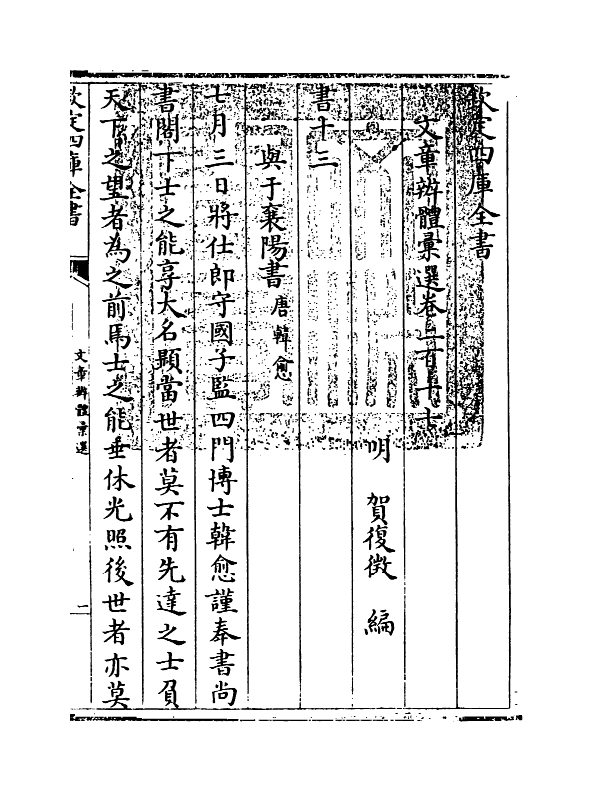 欽定四庫全書
文章辨體彙選卷二百十七
明 賀復徵 編
書十三
與于襄陽書 唐韓愈
七月三日將仕郎守國子監四門博士韓愈謹奉書尚
書閣下士之能享大名顯當世者莫不有先達之士負
天下之望者為之前馬士之能垂休光照後世者亦莫
欽定四庫全書
文章辨體彙選